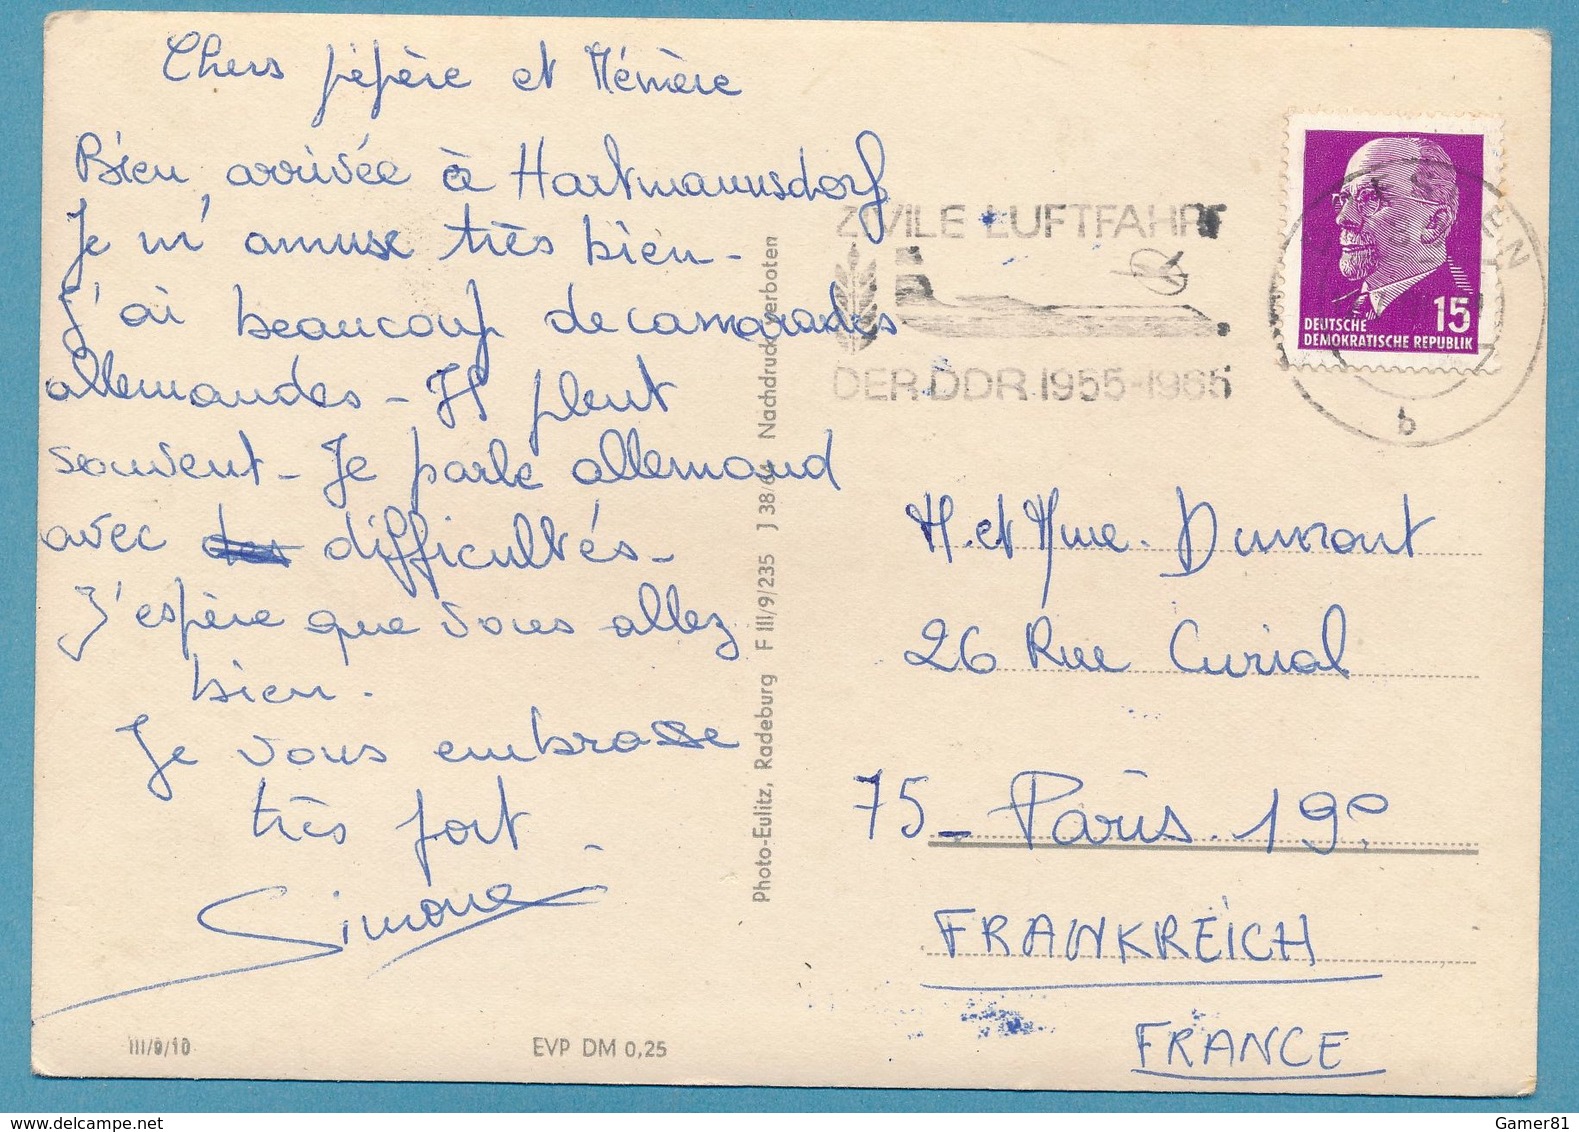 Chers pépère et Mémère
Bien arrivée à Hartmannsdorf
Je m'amuse très bien -
J'ai beaucoup de camarades
allemandes - Il pleut
souvent - Je parle allemand
avec des difficultés -
J'espère que vous allez
bien.
Je vous embrasse
très fort
Simone
III/9/10
EVP DM 0,25
Photo-Eulitz, Radeburg F III/9/235 J 38/64 Nachdruck verboten
ZIVILE LUFTFAHRT
DER DDR 1955-1965
15
DEUTSCHE
DEMOKRATISCHE REPUBLIK
b
M. et Mme. Dumont
26 Rue Curial
75 - Paris. 19e
FRANKREICH
FRANCE
Gamer81